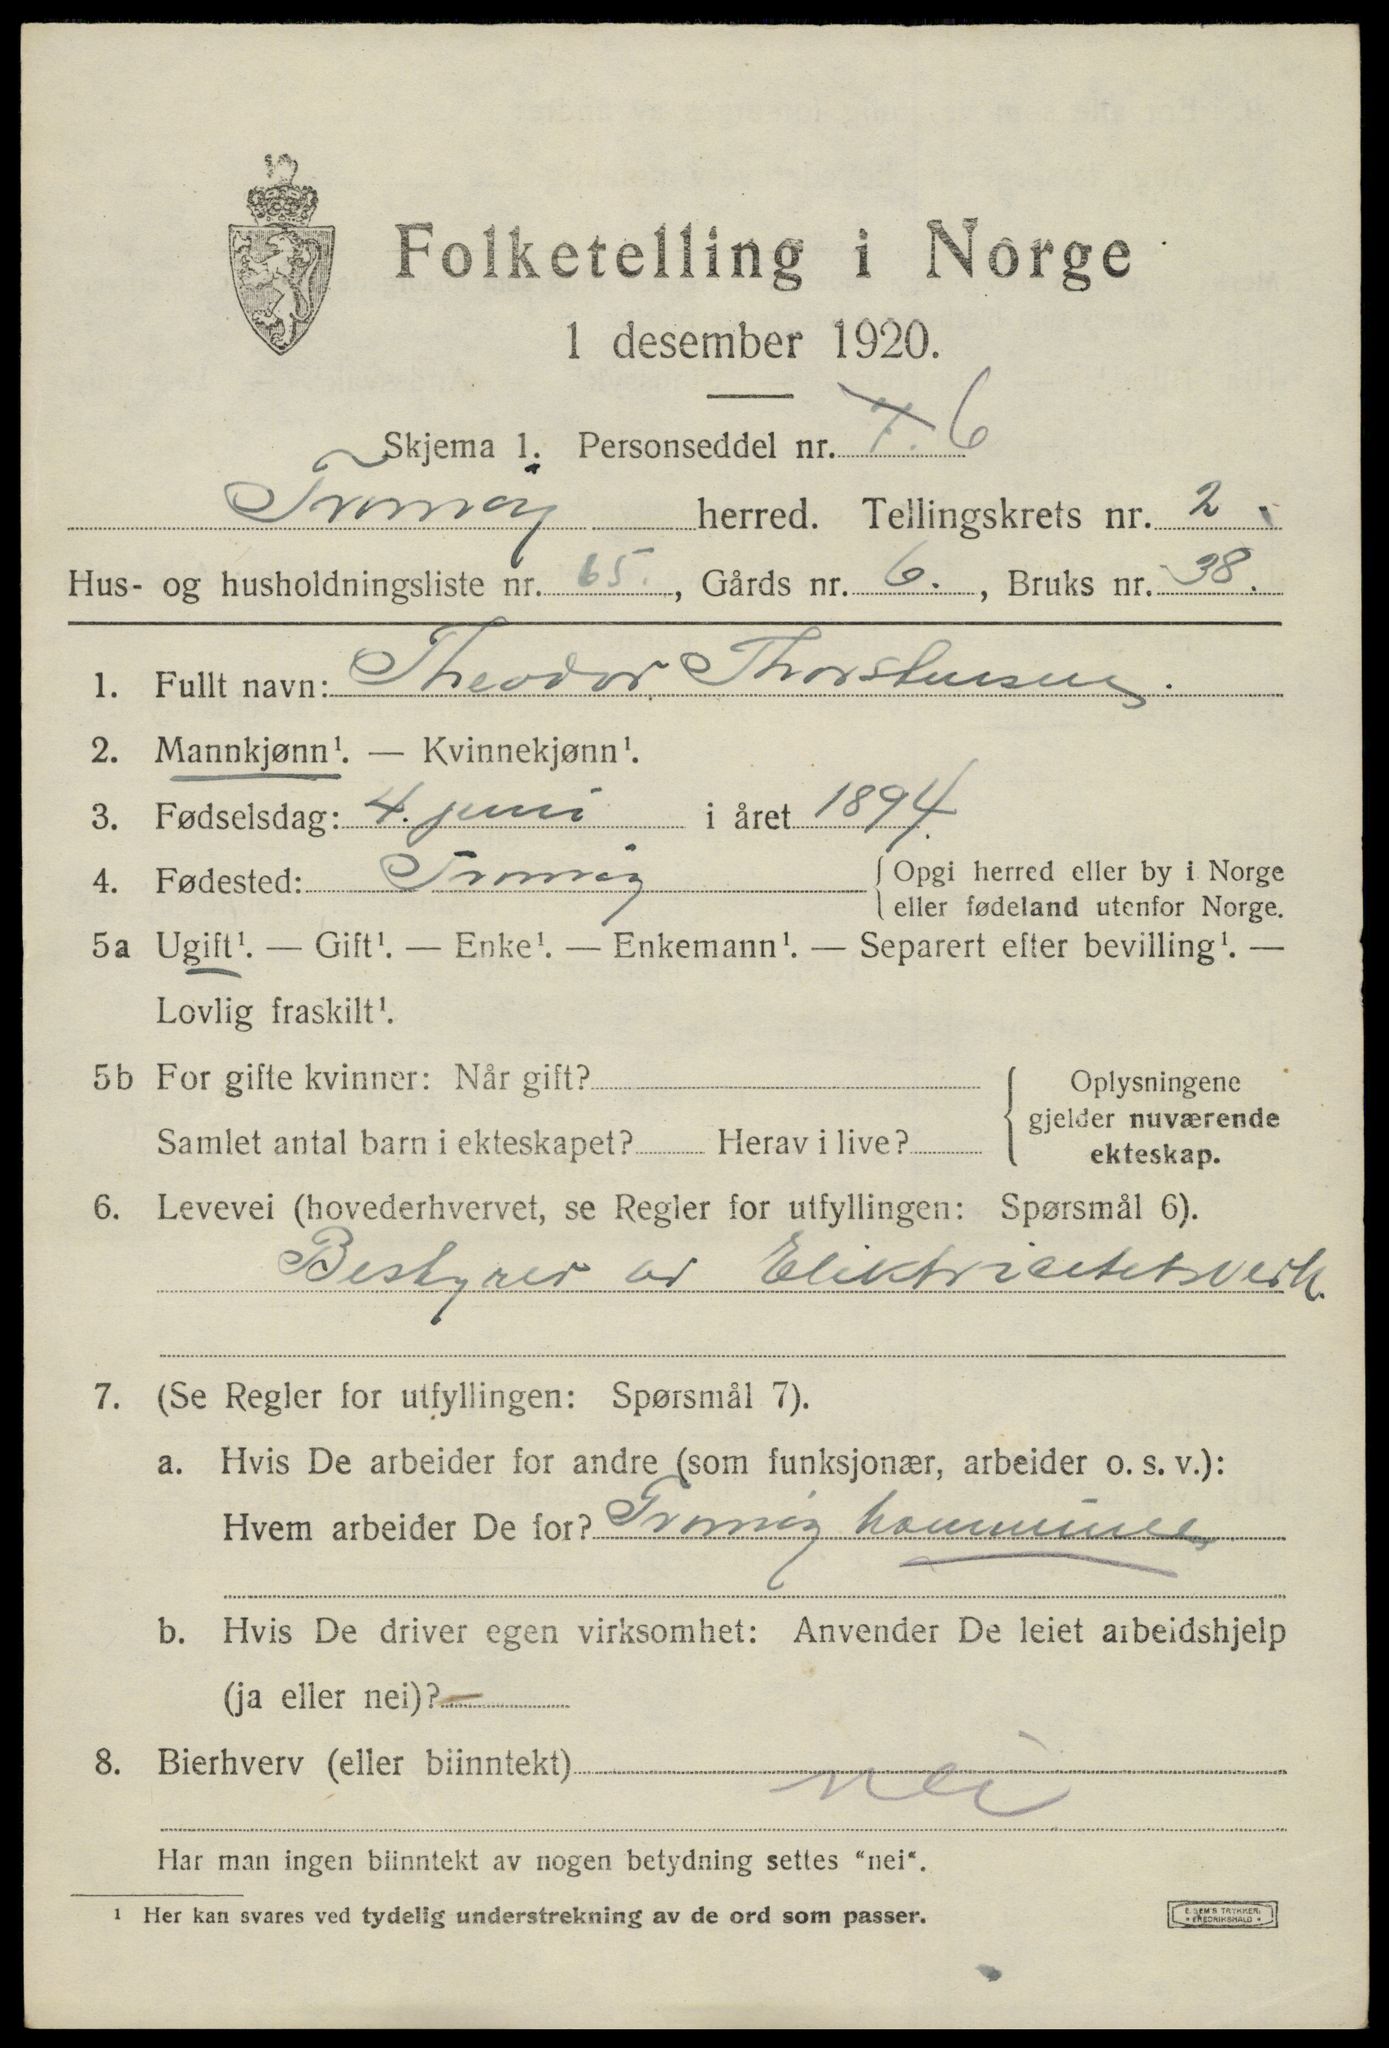 Folketelling i Norge
1 desember 1920.
Skjema 1. Personseddel nr. 7. 6
Tromøy herred. Tellingskrets nr. 2.
Hus- og husholdningsliste nr. 65., Gårds nr. 6., Bruks nr. 38.
1. Fullt navn: Theodor Thorstensen.
2. Mannkjønn¹. — Kvinnekjønn¹.
3. Fødselsdag: 4. juni i året 1894.
4. Fødested: Tromøy { Opgi herred eller by i Norge
eller fødeland utenfor Norge.
5a Ugift¹. — Gift¹. — Enke¹. — Enkemann¹. — Separert efter bevilling¹. —
Lovlig fraskilt¹.
5b For gifte kvinner: Når gift? { Oplysningene
gjelder nuværende
Samlet antal barn i ekteskapet? Herav i live?
ekteskap.
6. Levevei (hovederhvervet, se Regler for utfyllingen: Spørsmål 6).
Bestyrer av Elektricitetsverk.
7. (Se Regler for utfyllingen: Spørsmål 7).
a. Hvis De arbeider for andre (som funksjonær, arbeider o. s. v.):
Hvem arbeider De for? Tromøy kommune
b. Hvis De driver egen virksomhet: Anvender De leiet arbeidshjelp
(ja eller nei)? —
8. Bierhverv (eller biinntekt) nei
Har man ingen biinntekt av nogen betydning settes "nei".
¹ Her kan svares ved tydelig understrekning av de ord som passer.
E. SEM'S TRYKKERI
• FREDRIKSHALD •